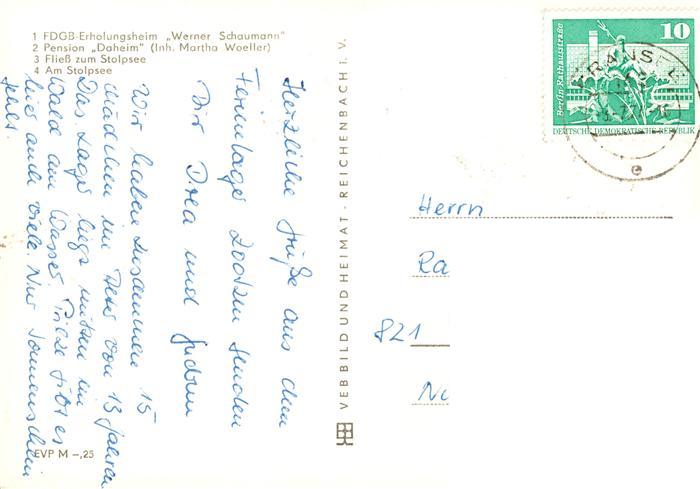 1 FDGB-Erholungsheim „Werner Schaumann"
2 Pension „Daheim" (Inh. Martha Woeller)
3 Fließ zum Stolpsee
4 Am Stolpsee
Herzliche Grüße aus dem
Ferienlager Zootzen senden
Dir Drea und Gudrun
Wir haben zusammen 15
Mädchen im Alter von 13 Jahren
Das Lager liegt mitten im
Wald am Wasser. Pilze gibt es
hier auch viele. Nur Sonnenschein
fehlt.
EVP M –,25
VEB BILD UND HEIMAT · REICHENBACH i. V.
Berlin-Rathausstraße
10
DEUTSCHE DEMOKRATISCHE REPUBLIK
GRANSEE
e
Herrn
Ra
821